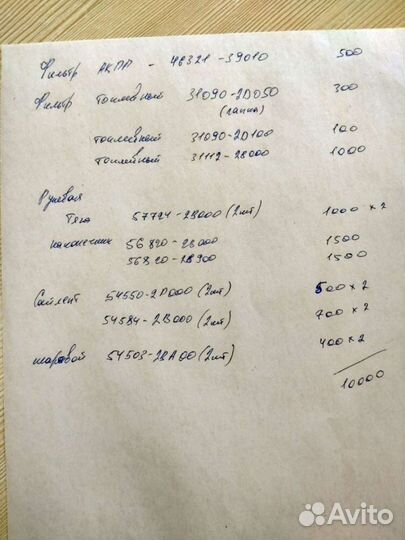 Фильтр АКПП - 46321-39010 500
Фильтр топливный 31090-2D050 300
топливный 31090-2D100 100
топливный 31112-28000 1000
Рулевая
тяга 57724-2B000 (2шт) 1000 x 2
наконечник 56820-2B000 1500
56820-2B900 1500
Сайлент 54550-2D000 (2шт) 500 x 2
54584-2B000 (2шт) 700 x 2
шаровой 54503-2BA00 (2шт) 400 x 2
10000
Avito